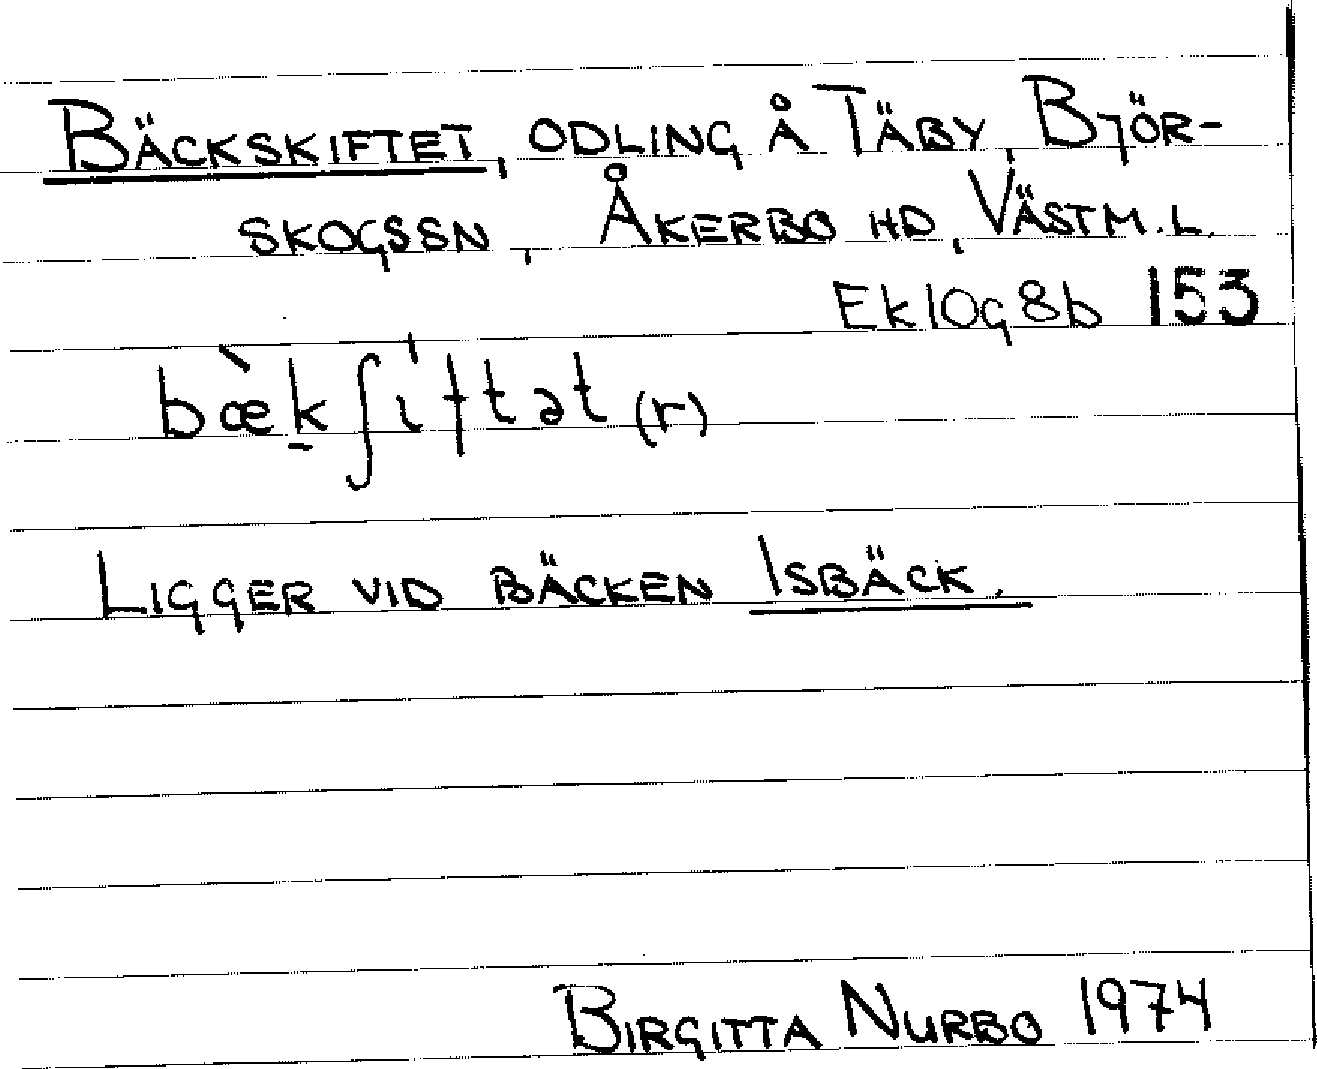 BÄCKSKIFTET, ODLING Å TÄBY, BJÖR-
SKOGSSN, ÅKERBO HD, VÄSTM.L.
Ek 10g8b 153
bæ̀kʃıftət (r)
LIGGER VID BÄCKEN ISBÄCK.
BIRGITTA NURBO 1974